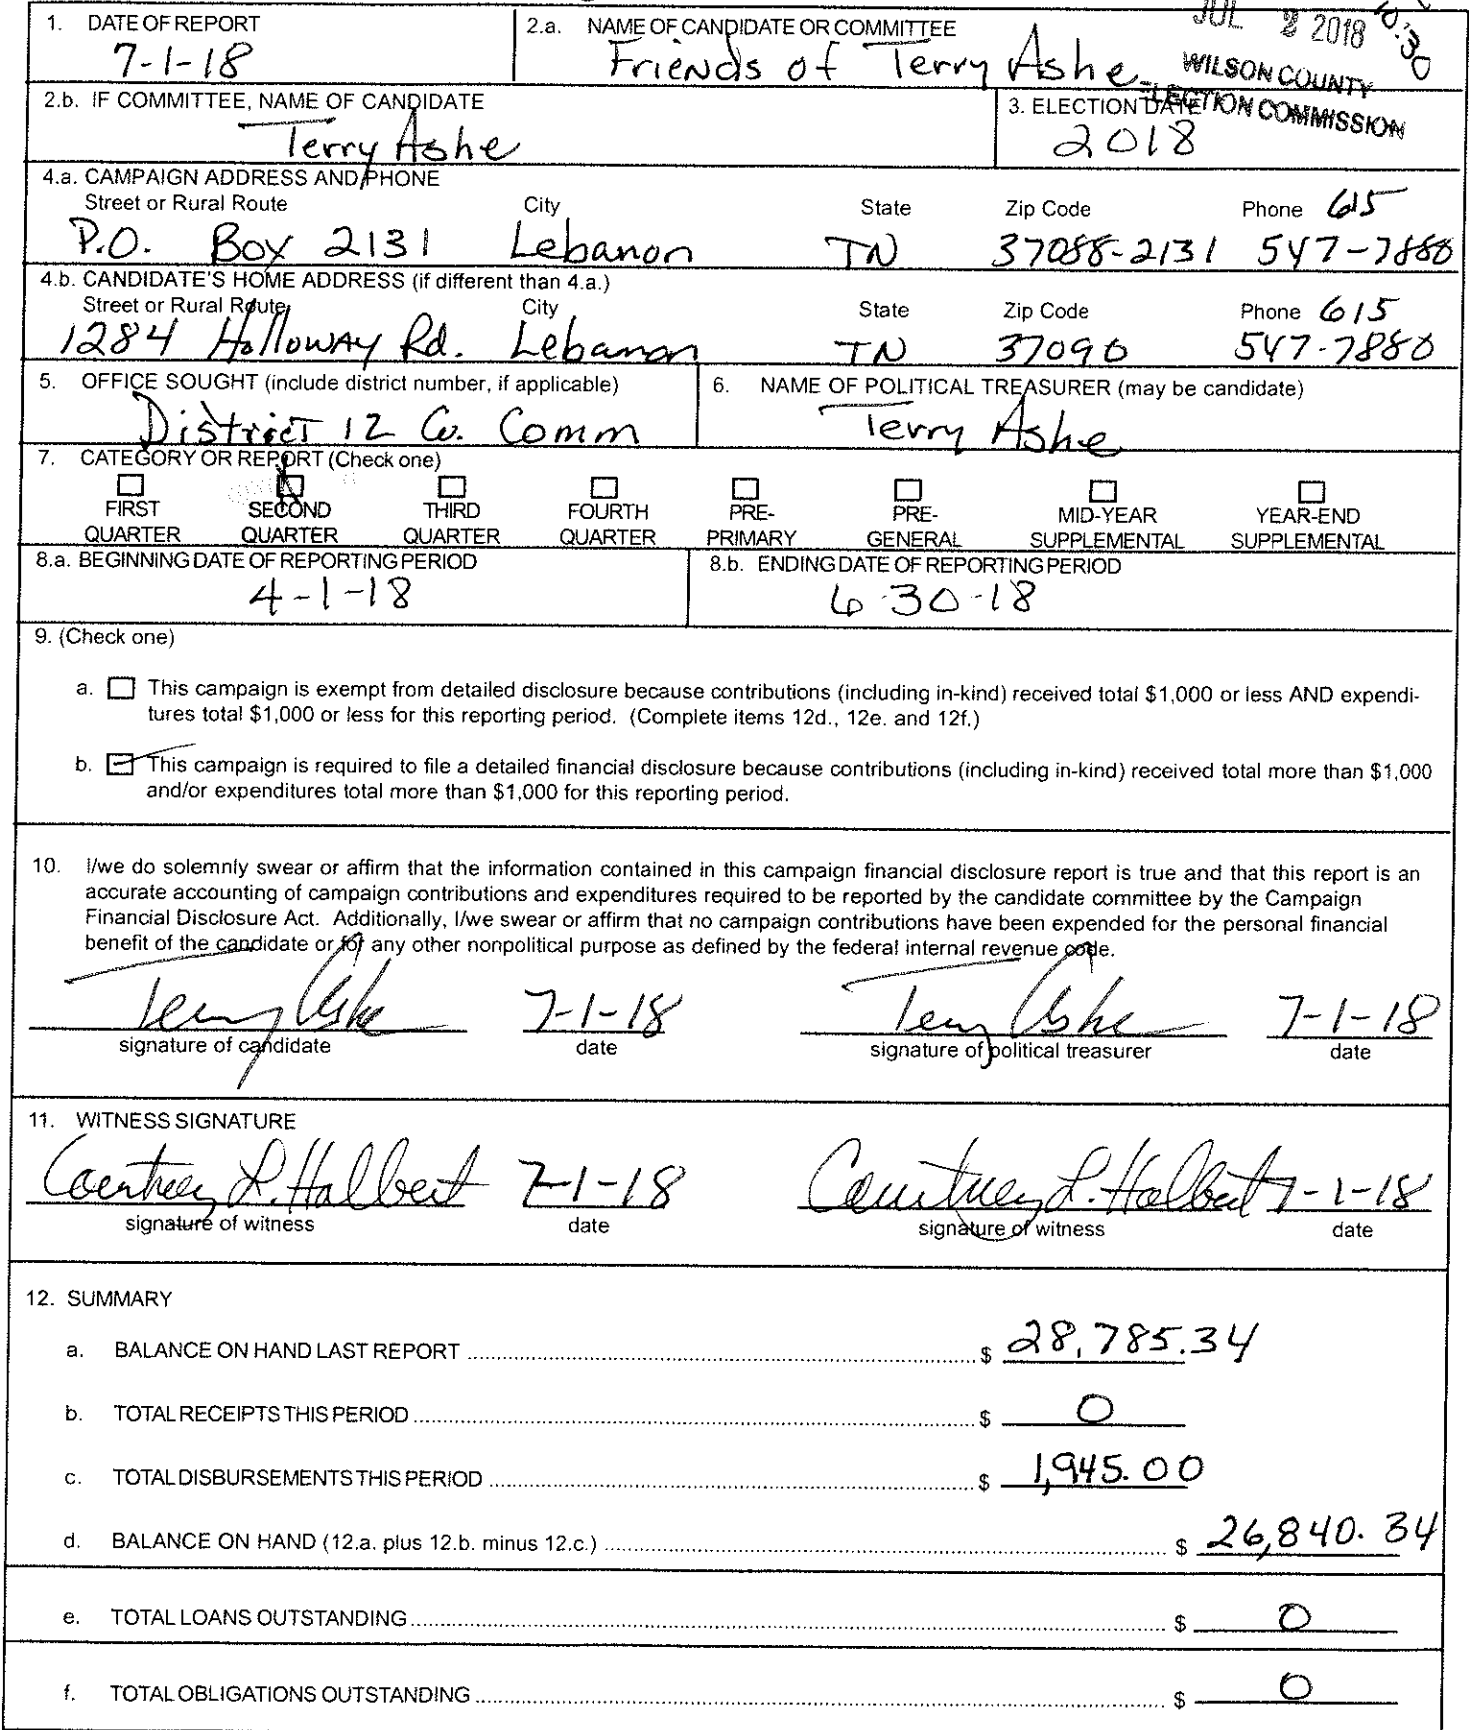 JUL 2 2018
WILSON COUNTY
ELECTION COMMISSION
1. DATE OF REPORT
7-1-18
2.a. NAME OF CANDIDATE OR COMMITTEE
Friends of Terry Ashe
2.b. IF COMMITTEE, NAME OF CANDIDATE
Terry Ashe
3. ELECTION DATE
2018
4.a. CAMPAIGN ADDRESS AND PHONE
Street or Rural Route City State Zip Code Phone 615
P.O. Box 2131 Lebanon TN 37088-2131 547-7880
4.b. CANDIDATE'S HOME ADDRESS (if different than 4.a.)
Street or Rural Route City State Zip Code Phone 615
1284 Holloway Rd. Lebanon TN 37090 547-7880
5. OFFICE SOUGHT (include district number, if applicable)
District 12 Co. Comm
6. NAME OF POLITICAL TREASURER (may be candidate)
Terry Ashe
7. CATEGORY OR REPORT (Check one)
FIRST SECOND THIRD FOURTH PRE- PRE- MID-YEAR YEAR-END
QUARTER QUARTER QUARTER QUARTER PRIMARY GENERAL SUPPLEMENTAL SUPPLEMENTAL
8.a. BEGINNING DATE OF REPORTING PERIOD
4-1-18
8.b. ENDING DATE OF REPORTING PERIOD
6-30-18
9. (Check one)
a. This campaign is exempt from detailed disclosure because contributions (including in-kind) received total $1,000 or less AND expendi-
tures total $1,000 or less for this reporting period. (Complete items 12d., 12e. and 12f.)
b. This campaign is required to file a detailed financial disclosure because contributions (including in-kind) received total more than $1,000
and/or expenditures total more than $1,000 for this reporting period.
10. I/we do solemnly swear or affirm that the information contained in this campaign financial disclosure report is true and that this report is an
accurate accounting of campaign contributions and expenditures required to be reported by the candidate committee by the Campaign
Financial Disclosure Act. Additionally, I/we swear or affirm that no campaign contributions have been expended for the personal financial
benefit of the candidate or for any other nonpolitical purpose as defined by the federal internal revenue code.
Terry Ashe 7-1-18 Terry Ashe 7-1-18
signature of candidate date signature of political treasurer date
11. WITNESS SIGNATURE
Courtney L. Halbert 7-1-18 Courtney L. Halbert 7-1-18
signature of witness date signature of witness date
12. SUMMARY
a. BALANCE ON HAND LAST REPORT $ 28,785.34
b. TOTAL RECEIPTS THIS PERIOD $ 0
c. TOTAL DISBURSEMENTS THIS PERIOD $ 1,945.00
d. BALANCE ON HAND (12.a. plus 12.b. minus 12.c.) $ 26,840.34
e. TOTAL LOANS OUTSTANDING $ 0
f. TOTAL OBLIGATIONS OUTSTANDING $ 0